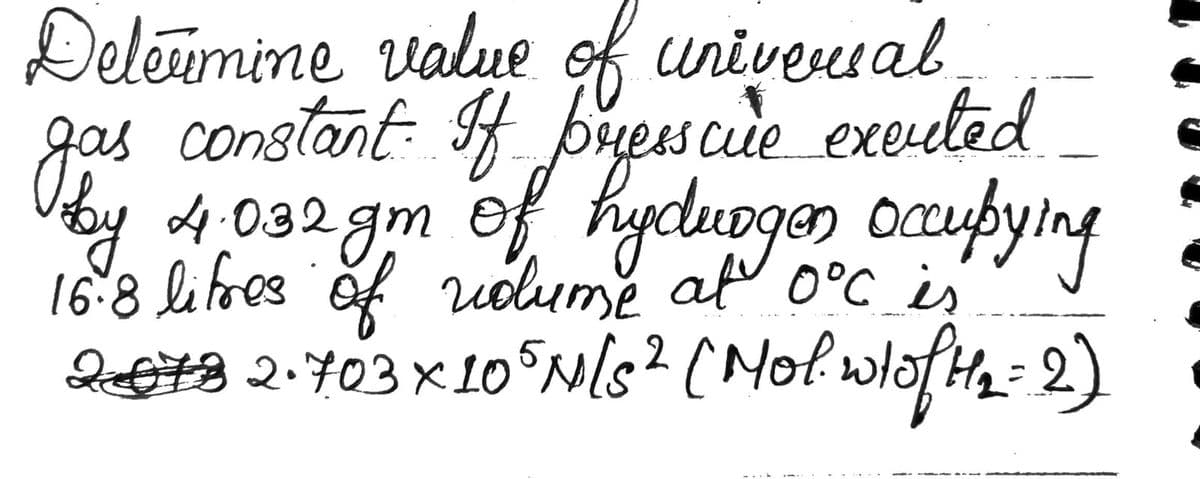 Determine value of universal
gas constant. If pressure exerted
by 4.032 gm of hydrogen occupying
16.8 litres of volume at 0°C is
2.703 × 10⁵ N/s² (Mol. wt of H₂ = 2)